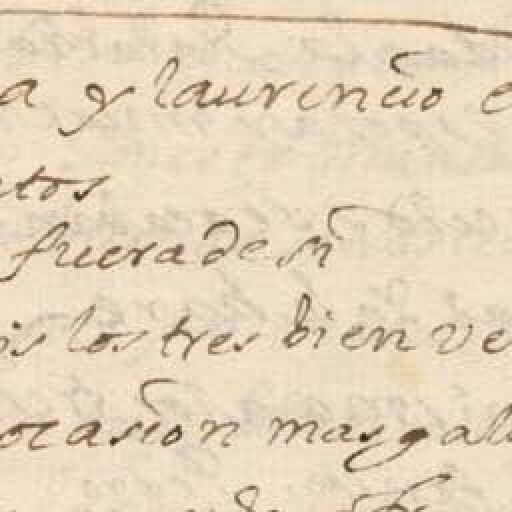 a y laurencio e
etos
fuera de si
is los tres bien ve
ocasion mas gala